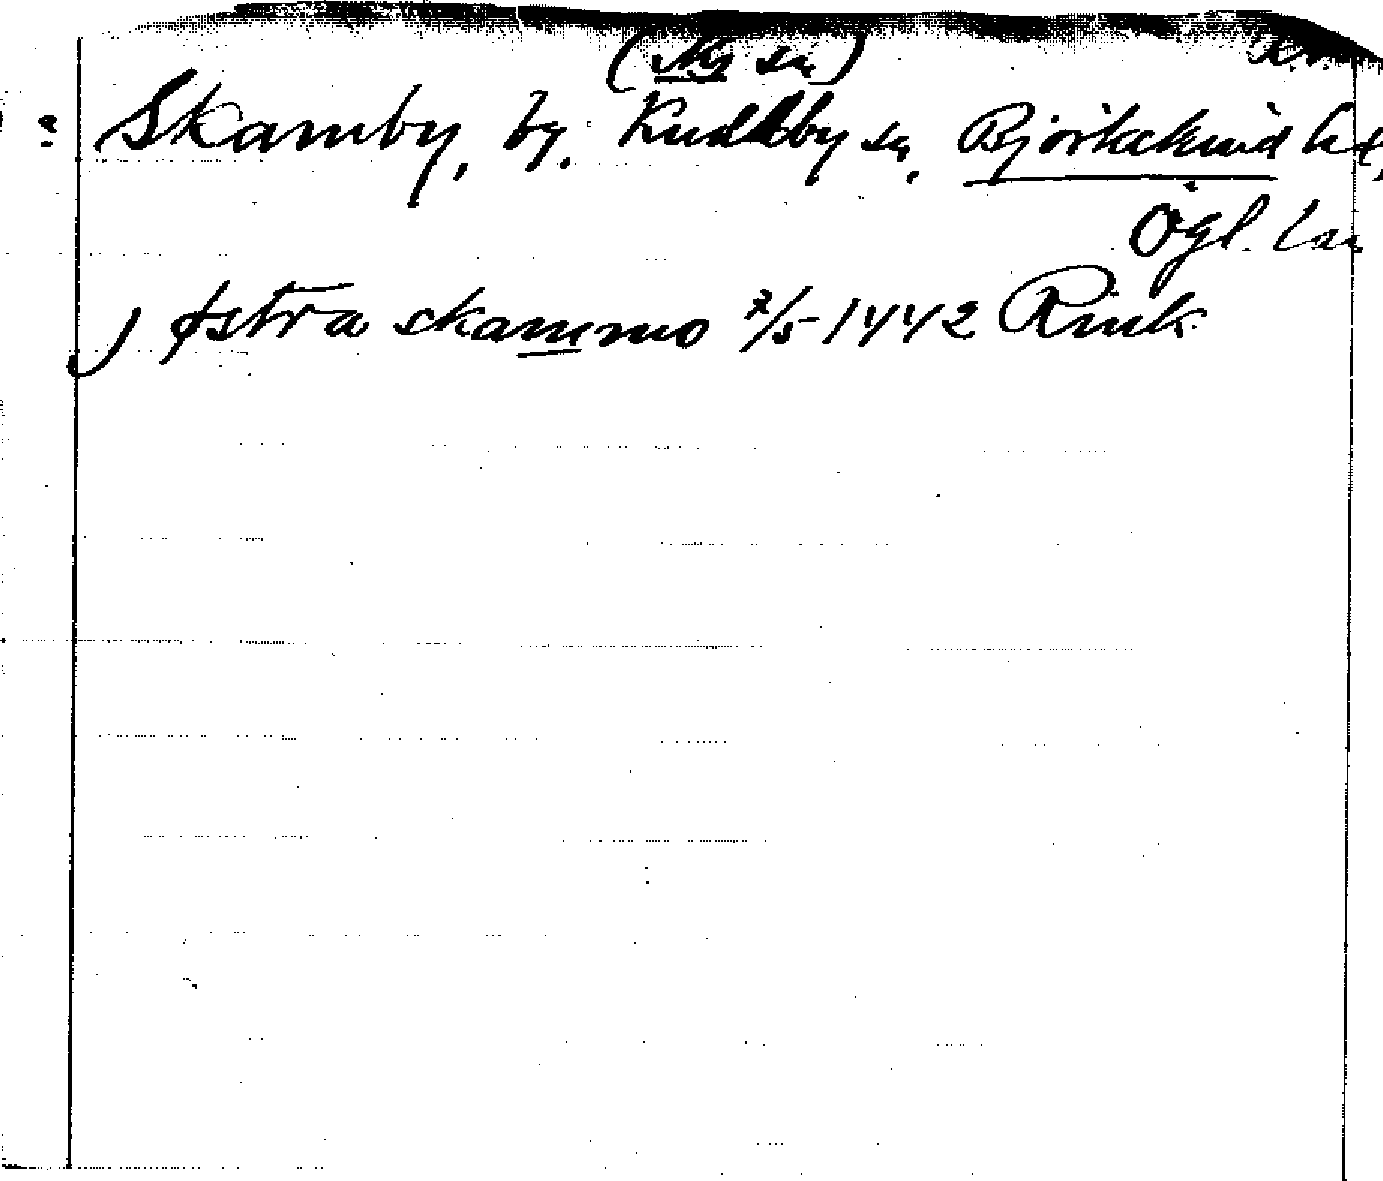 (Ny sn)
Skamby, by. Kuddby sn, Björkekind hd,
Ögl. län
) østra skammo 2/5 1442 Rink